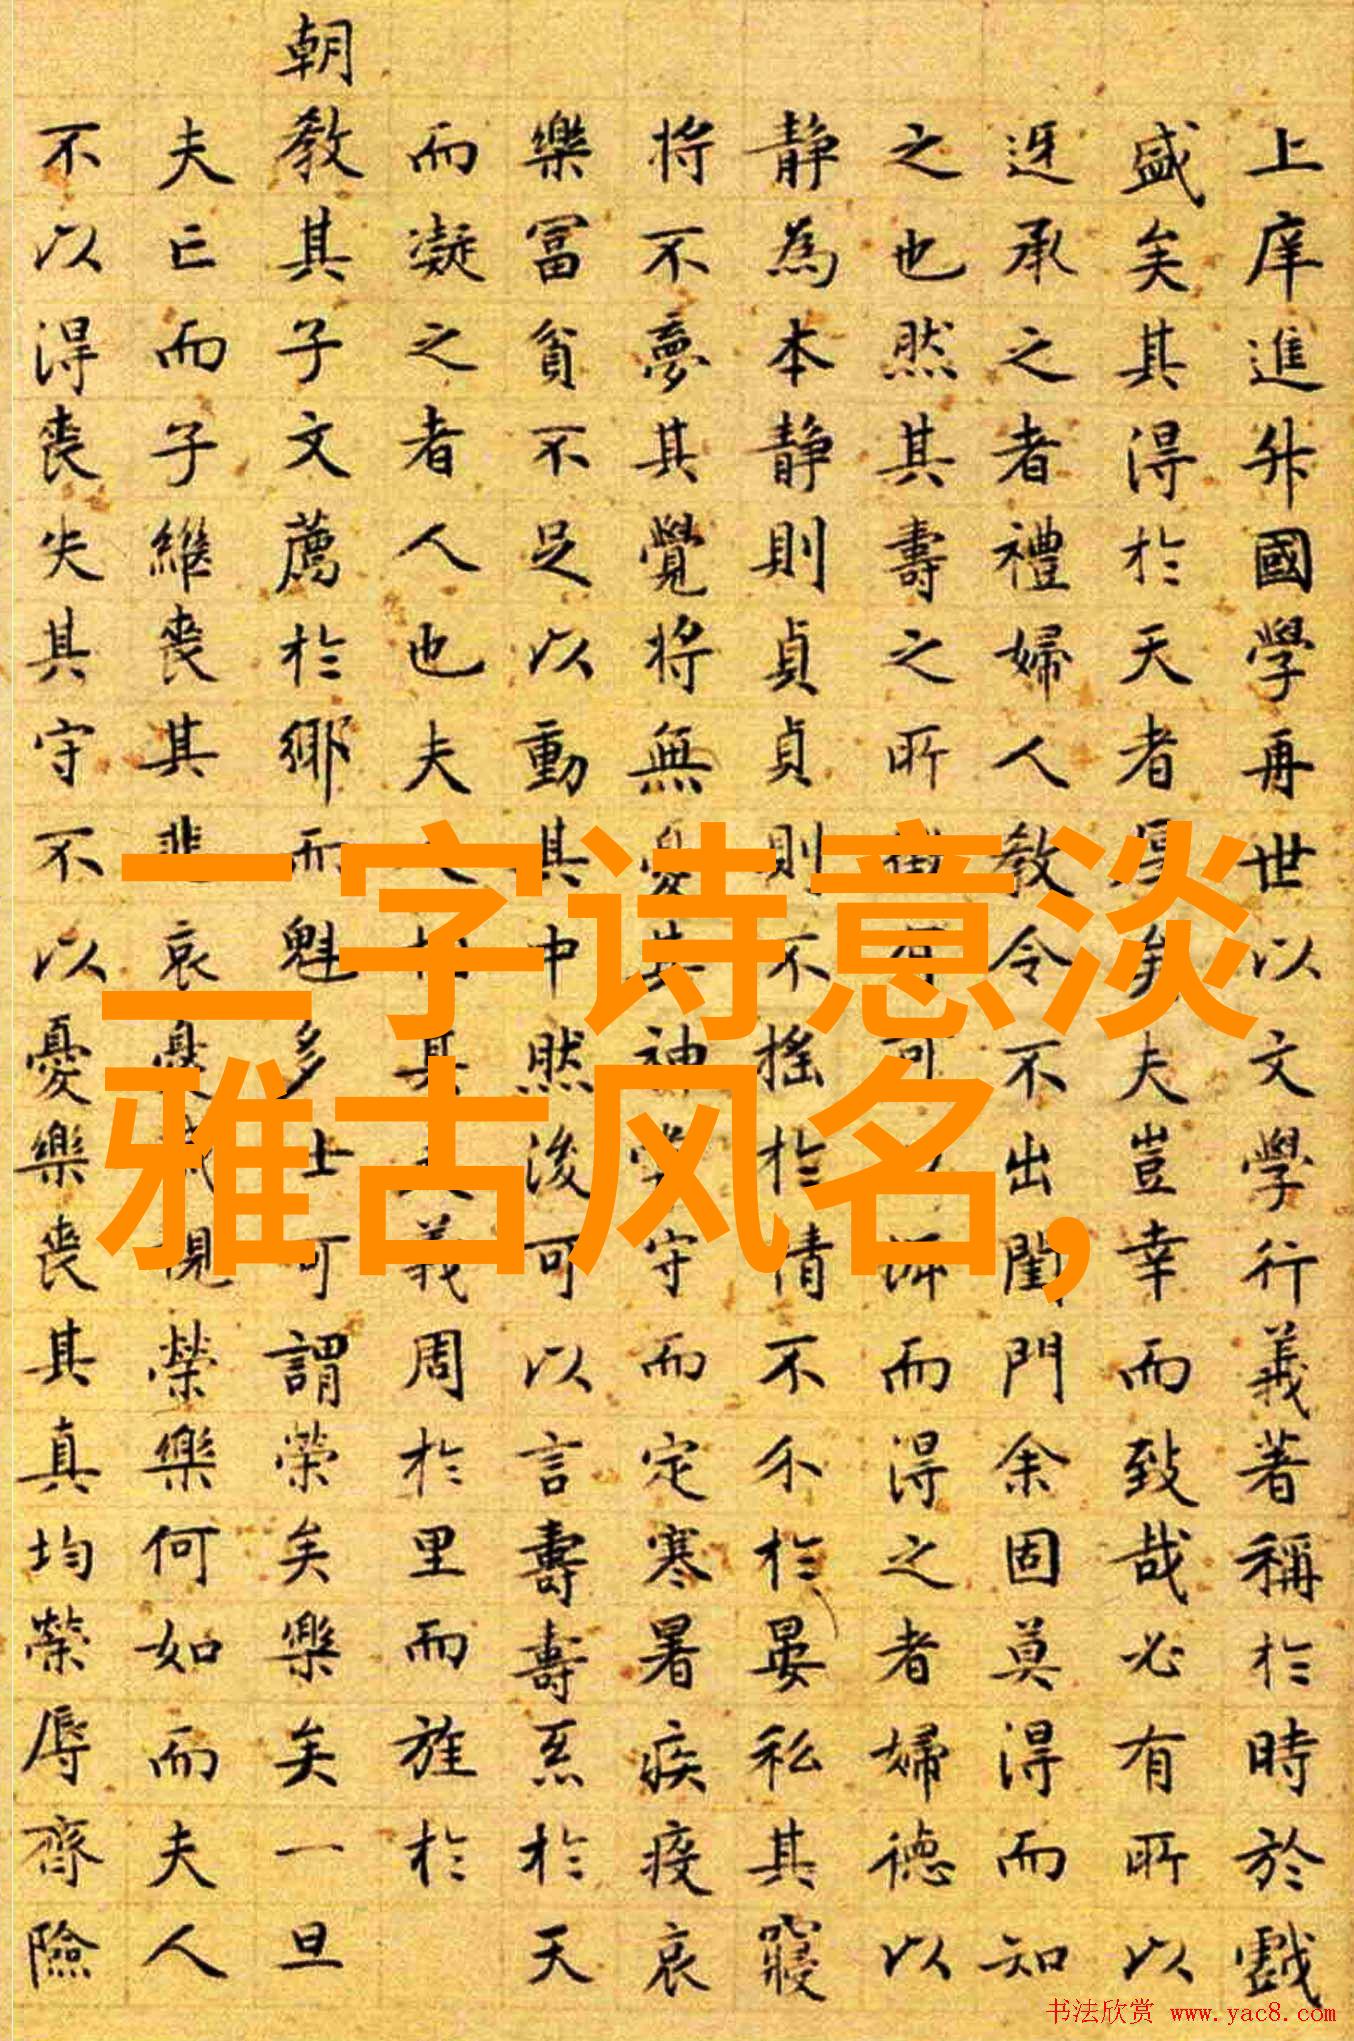 上庠進升國學再世以文學行義著稱於時於戲
盛矣其得於天者厚矣夫豈幸而致哉必有所以
迓承之者禮婦人教令不出閨門余固莫得而知
之也然其壽之所可而得之者婦德以
静為本静則貞貞則不搖於情不介於晏私其寝
将不夢其覺将無憂其神守而定寒暑疾疫哀
樂冨貧不足以動其中然後可以言壽壽系於天
而凝之者人也夫人相其夫義周於里而旌於
朝教其子文薦於鄉而魁多士可謂榮矣樂矣一旦
夫亡而子繼喪其悲哀憂戚視榮樂何如而夫人
不以得喪失其守不以憂樂喪其真均榮辱齊險
二字诗意淡
雅古风名,
书法欣赏 www.yac8.com